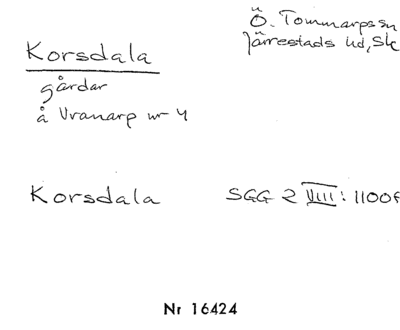 Ö. Tommarps sn
Järrestads hd, Sk
Korsdala
gårdar
å Vranarp nr 4
Korsdala SGG 2 VIII: 1100f
Nr 16424